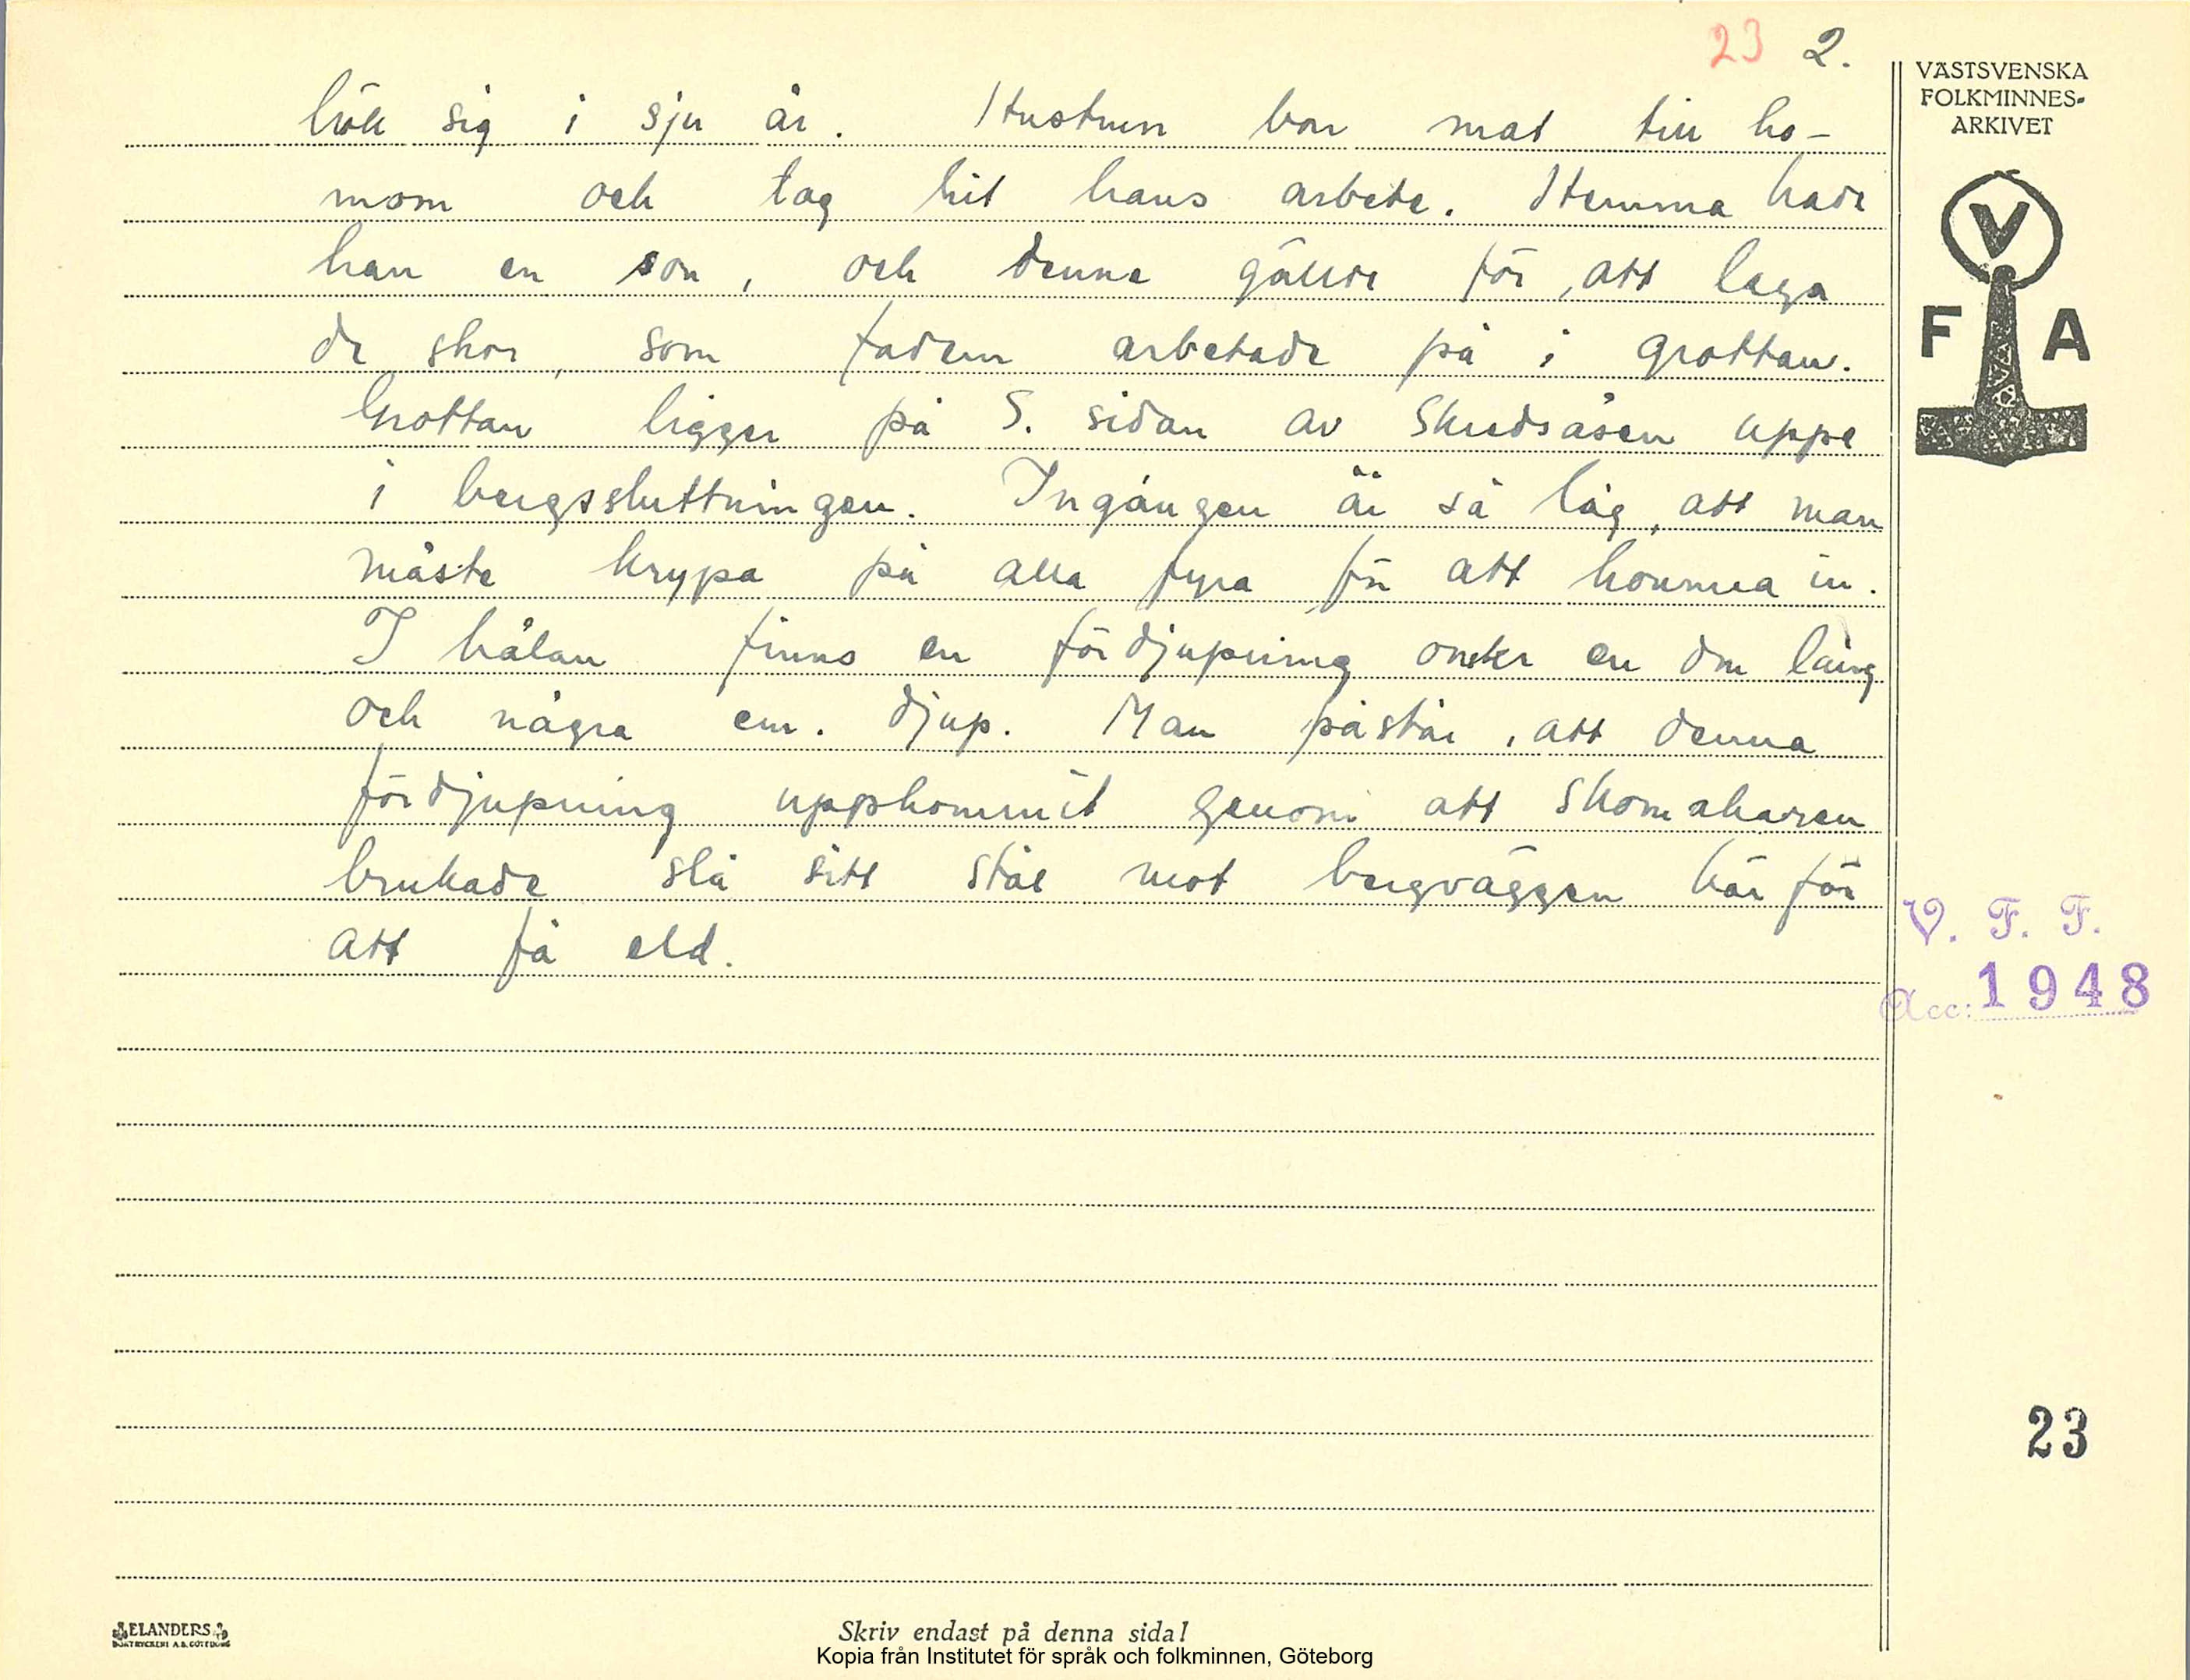 23 2.
VÄSTSVENSKA
FOLKMINNES-
ARKIVET
höll sig i sju år. Hustrun bar mat till ho-
mom och tog hit hans arbete. Hemma hade
han en son, och denne gällde för, att laga
de skor, som fadern arbetade på i grottan.
Grottan ligger på S. sidan av Skredsåsen uppe
i bergssluttningen. Ingången är så låg, att man
måste krypa på alla fyra för att komma in.
I hålan finns en fördjupning en dm lång
och några cm. djup. Man påstår, att denna
fördjupning uppkommit genom att skomakaren
brukade slå sitt stål mot bergväggen här för
att få eld.
V
F A
V. F. F.
Acc: 1948
23
ELANDERS
BOKTRYCKERI A.B. GÖTEBORG
Skriv endast på denna sida!
Kopia från Institutet för språk och folkminnen, Göteborg